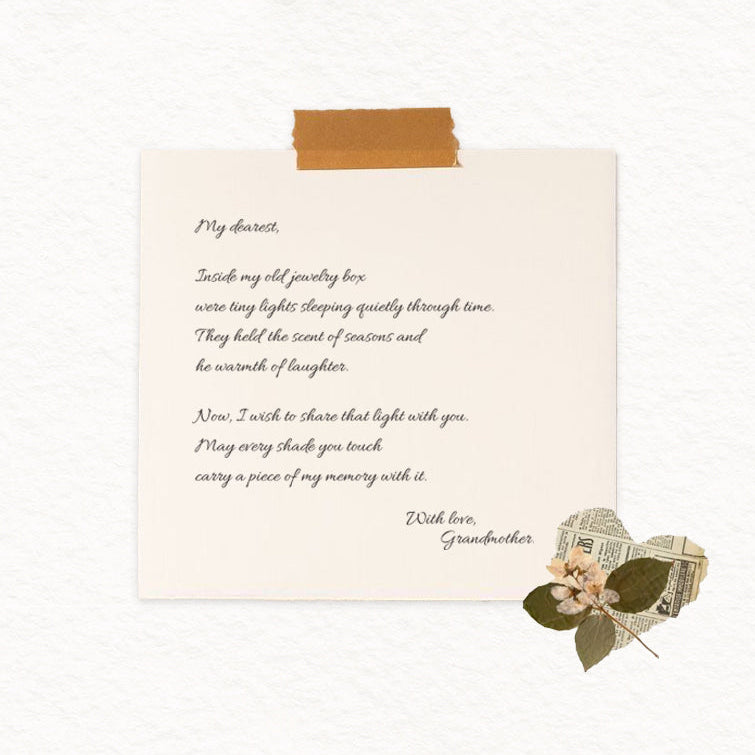 My dearest,
Inside my old jewelry box
were tiny lights sleeping quietly through time.
They held the scent of seasons and
he warmth of laughter.
Now, I wish to share that light with you.
May every shade you touch
carry a piece of my memory with it.
With love,
Grandmother.